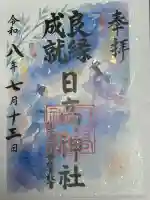 奉拝
良縁
成就
日高神社
令和八年七月十三日